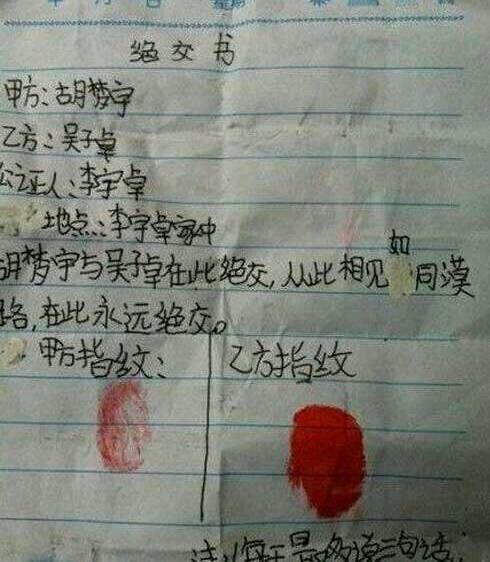 绝交书
甲方:胡梦宇
乙方:吴子卓
公证人:李宇卓
地点:李宇卓家中
胡梦宇与吴子卓在此绝交,从此相见如同漠
路,在此永远绝交。
甲方指纹: 乙方指纹
注:每天最多说三句话.